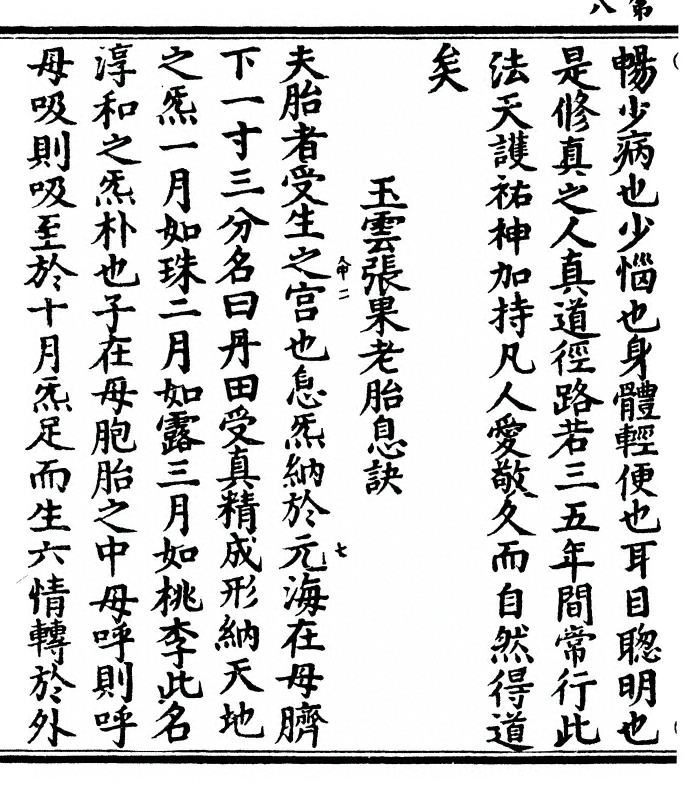 第
八
暢少病也少惱也身體輕便也耳目聦明也
是修真之人真道徑路若三五年間常行此
法天護祐神加持凡人愛敬久而自然得道
矣
玉雲張果老胎息訣
夫胎者受生之宫也息炁納於元海在母臍
下一寸三分名曰丹田受真精成形納天地
之炁一月如珠二月如露三月如桃李此名
淳和之炁朴也子在母胞胎之中母呼則呼
母吸則吸至於十月炁足而生六情轉於外
七